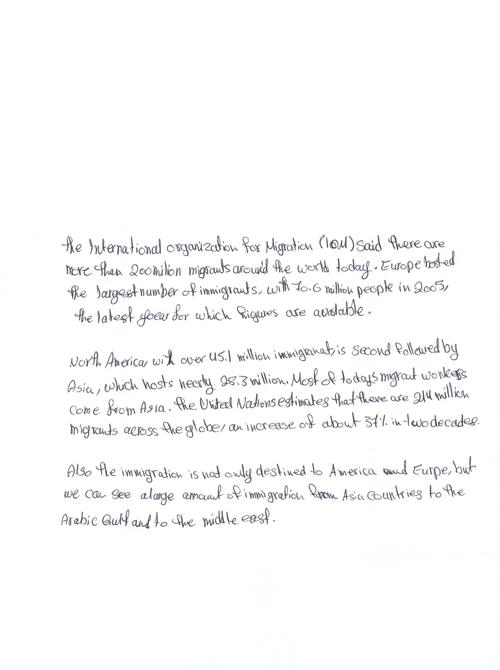 the International organization for Migration (IOM) said there are
more than 200 million migrants around the world today. Europe hosted
the largest number of immigrants, with 70.6 million people in 2005,
the latest for which figures are available.
North America, with over 45.1 million immigranats, is second followed by
Asia, which hosts nearly 25.3 million. Most of todays migrant workers
come from Asia. the United Nations estimates that there are 214 million
migrants across the globe, an increase of about 37% in two decades.
Also the immigration is not only destined to America and Eurpe, but
we can see a large amount of immigration from Asia Countries to the
Arabic Gulf and to the middle east.